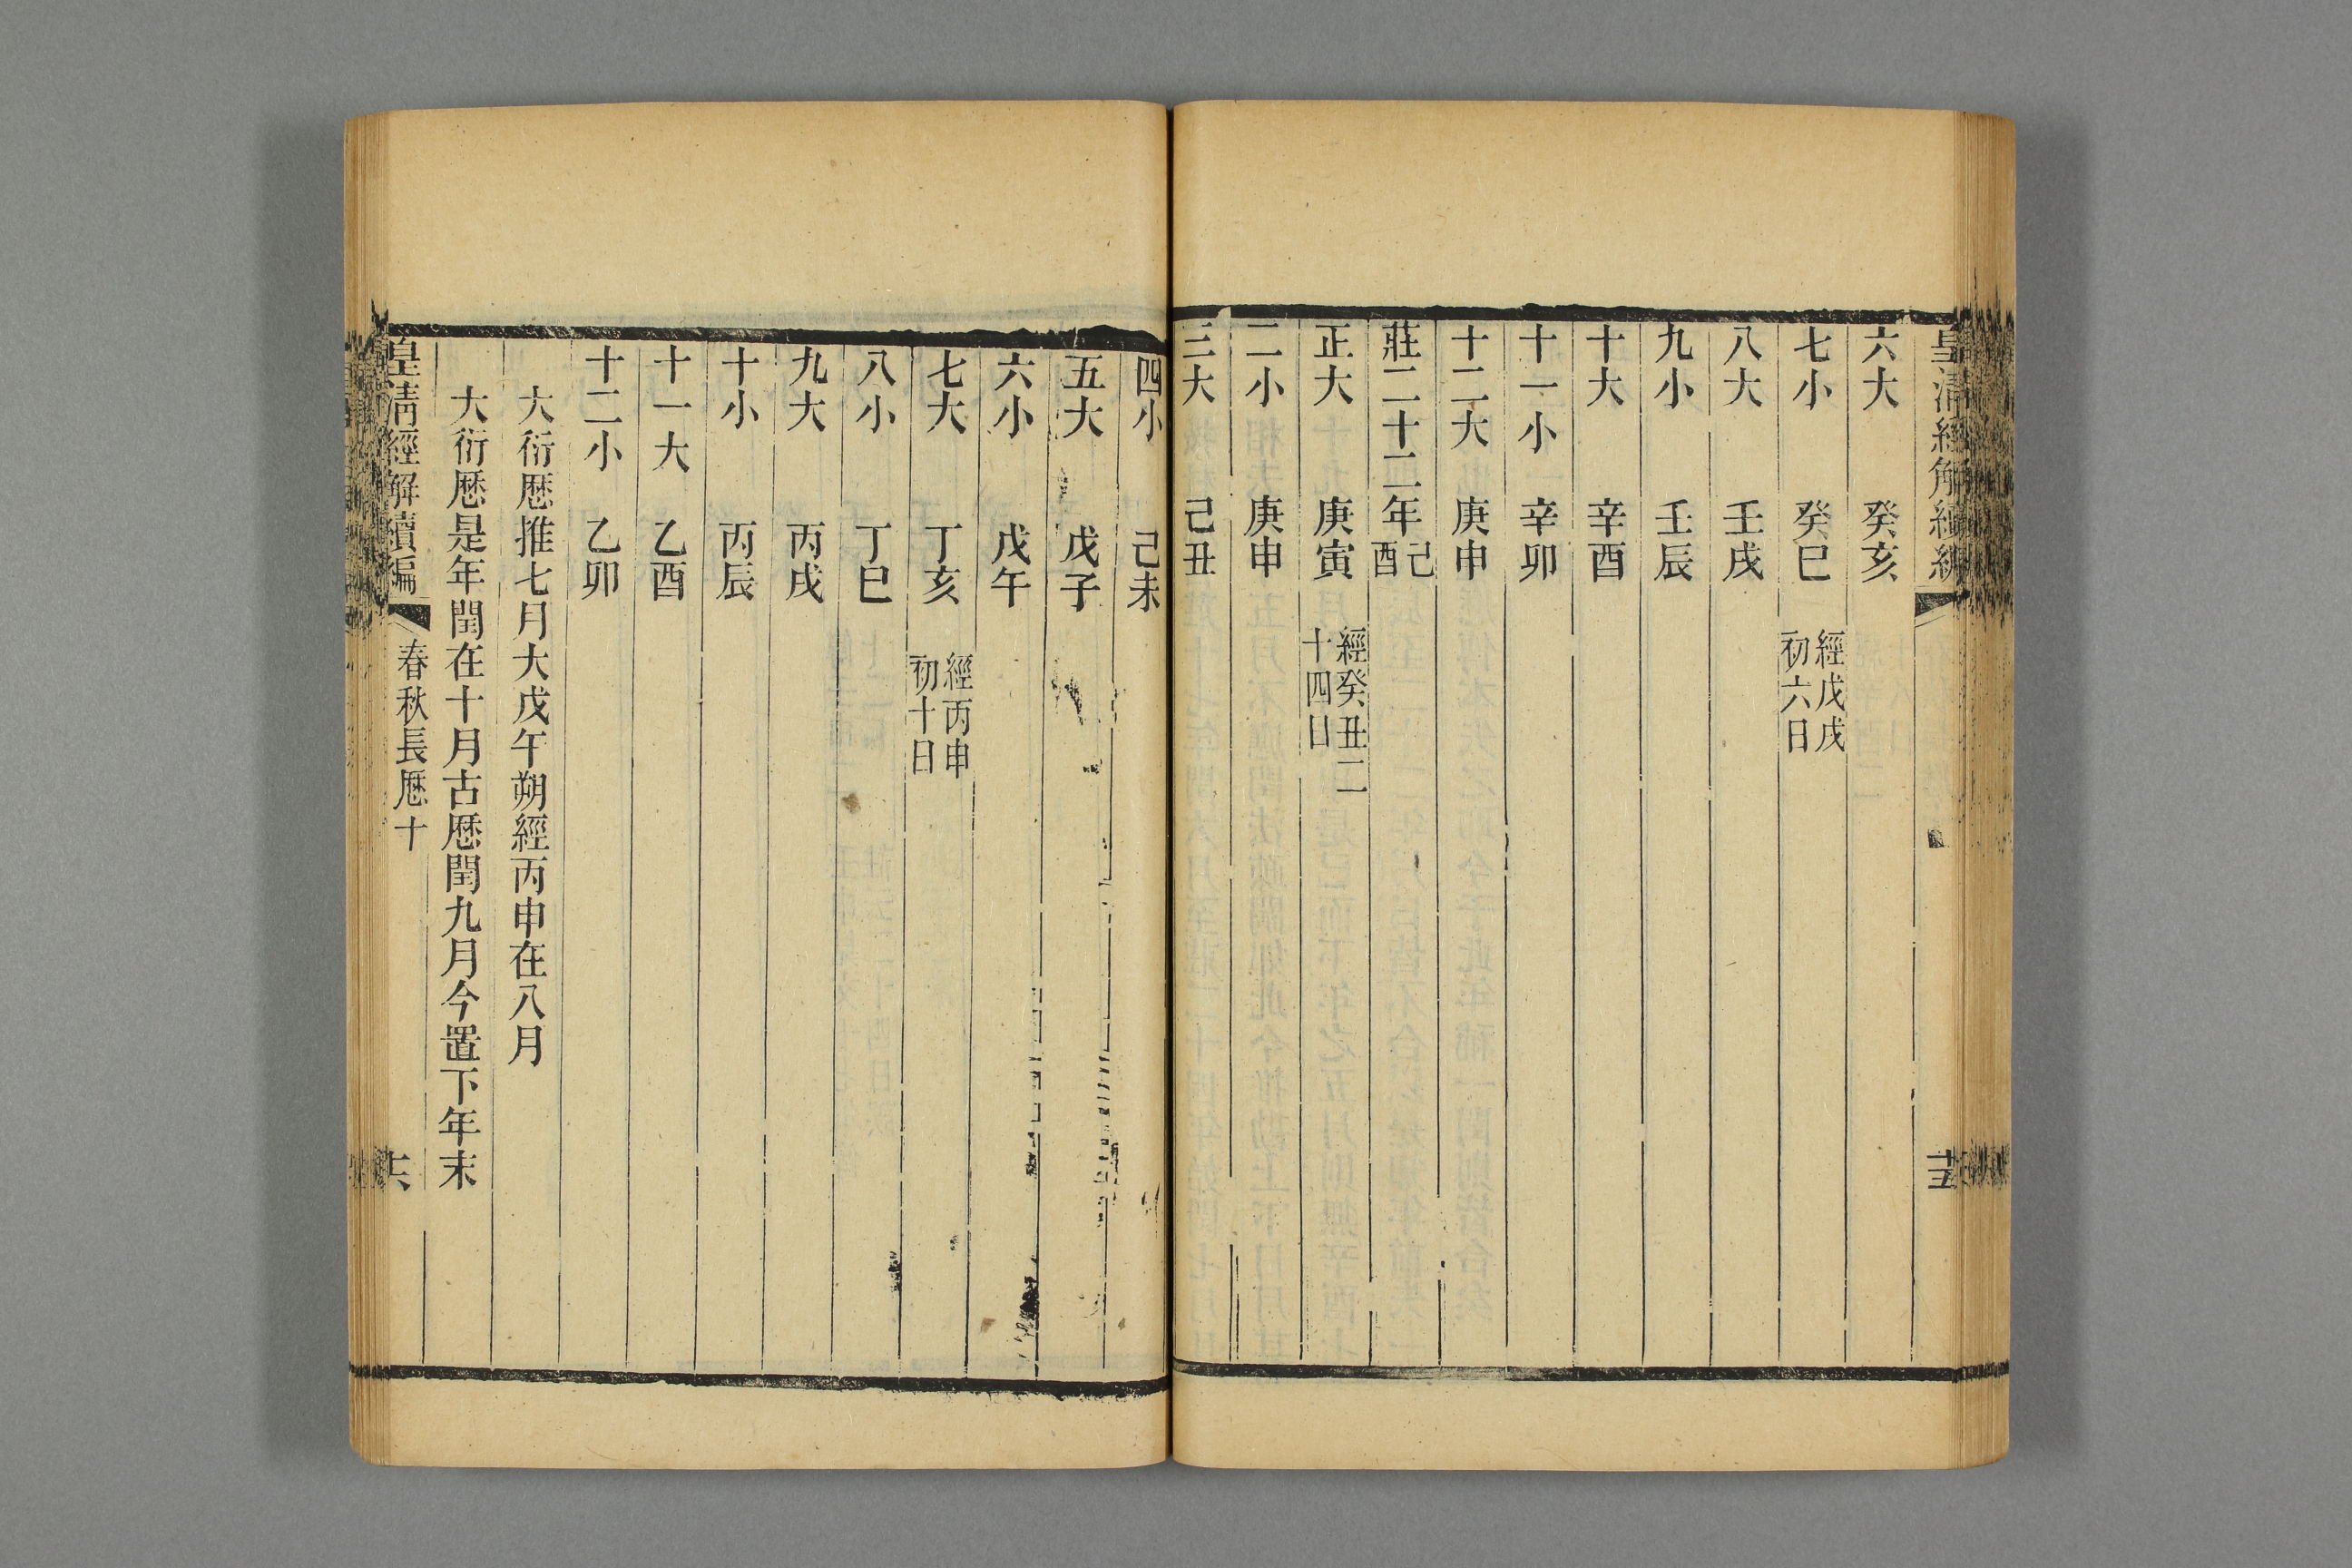 皇清經解續編
十五
六大 癸亥
七小 癸巳 經戊戌初六日
八大 壬戌
九小 壬辰
十大 辛酉
十一小 辛卯
十二大 庚申
莊二十二年己酉
正大 庚寅 經癸丑二十四日
二小 庚申
三大 己丑
四小 己未
五大 戊子
六小 戊午
七大 丁亥 經丙申初十日
八小 丁巳
九大 丙戌
十小 丙辰
十一大 乙酉
十二小 乙卯
大衍厯推七月大戊午朔經丙申在八月
大衍厯是年閏在十月古厯閏九月今置下年末
皇清經解續編 春秋長厯十 十六